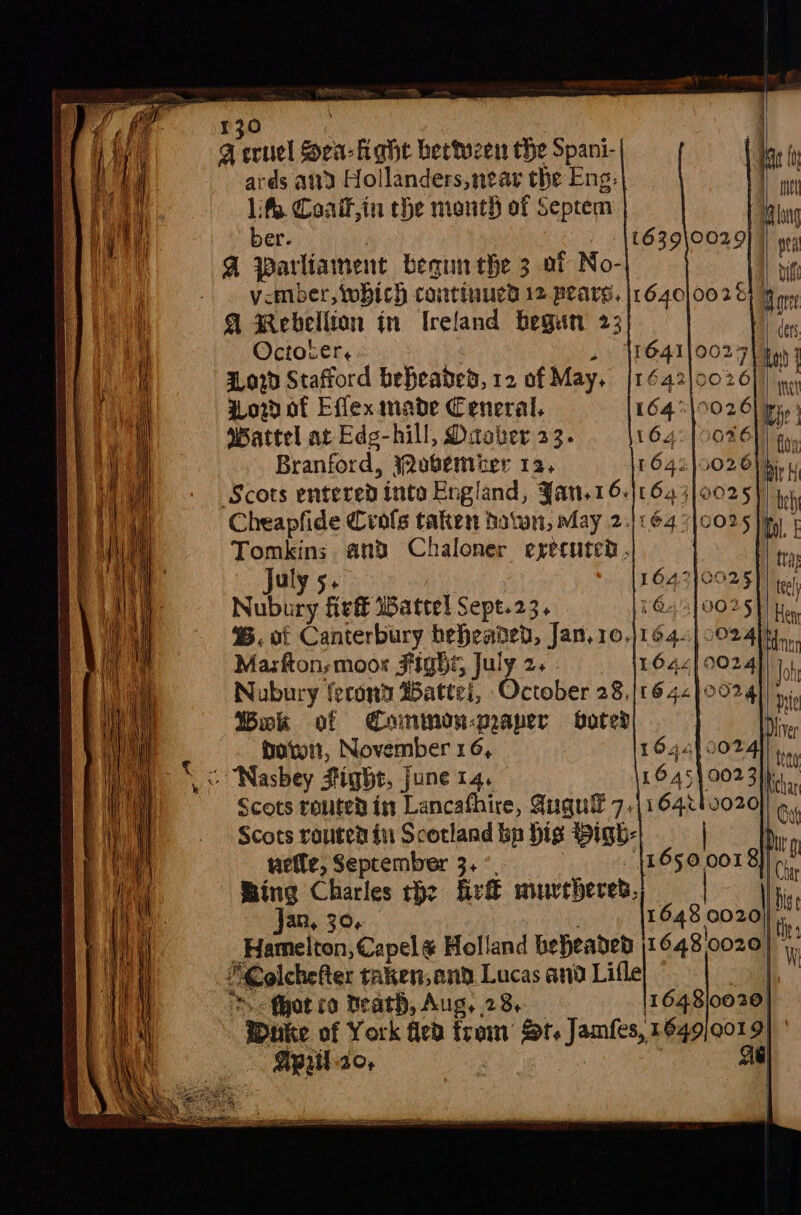 130
A cruel Sea-fight between the Spani-
ards and Hollanders, near the Eng-
lish Coast, in the month of Septem
ber. 1639|0029
A Parliament begun the 3 of No-
vember, which continued 12 years. 1640|0028
A Rebellion in Ireland begun 23
October. 1641|0027
Lord Stafford beheaded, 12 of May. 1642|0026
Lord of Essex made General. 164|0026
Battel at Edg-hill, October 23. 164|0026
Branford, November 12. 1642|0026
Scots entered into England, Jan. 16. 1643|0025
Cheapside Cross taken down, May 2. 1643|0025
Tomkins and Chaloner executed,
July 5. 1643|0025
Nubury first Battel Sept. 23. 1643|0025
B. of Canterbury beheaded, Jan. 10. 164|0024
Marston-moor Fight, July 2. 1644|0024
Nubury second Battel, October 28. 1644|0024
Book of Common-prayer voted
down, November 16. 1644|0024
Nasbey Fight, June 14. 1645|0023
Scots routed in Lancashire, August 7. 164|0020
Scots routed in Scotland by his High-
nesse, September 3. 1650 0018
King Charles the first murthered,
Jan. 30. 1648 0020
Hamelton, Capel & Holland beheaded 1648|0020
Colchester taken, and Lucas and Lisle
shot to death, Aug. 28. 1648|0020
Duke of York fled from St. Jamses, 1649|0019
April 20.
As